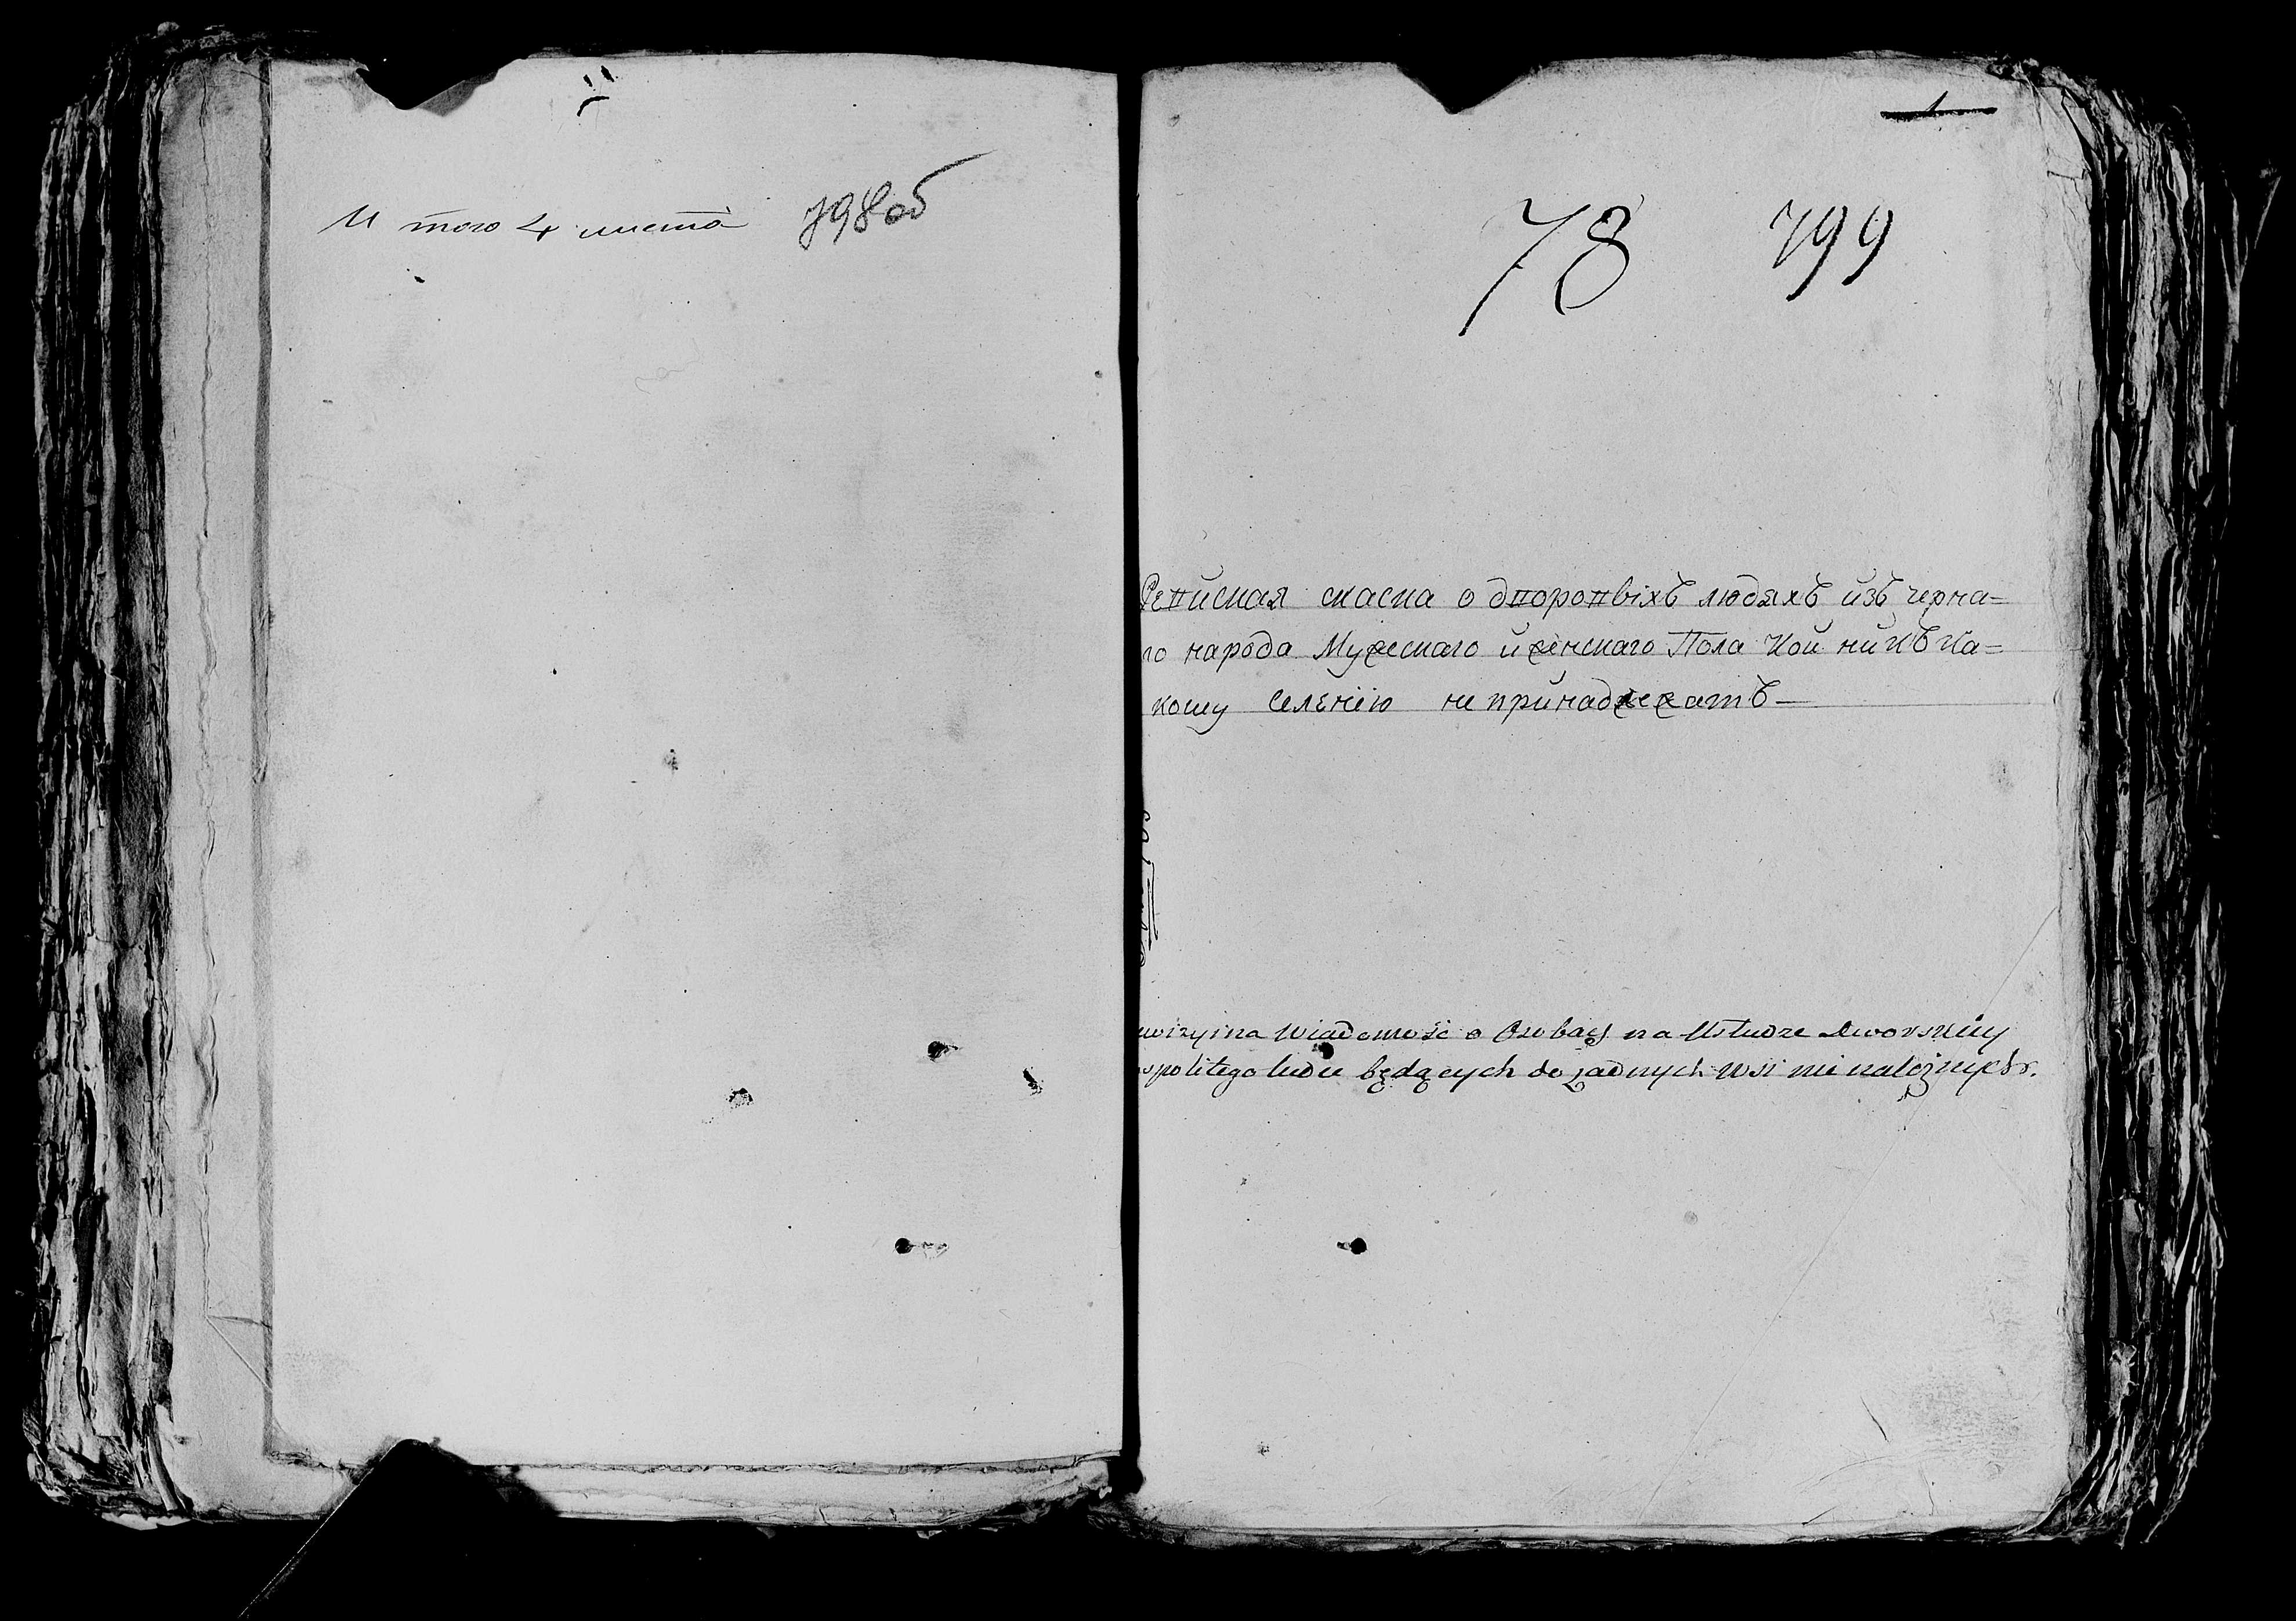 И того 4 листа 798об
1
78 799
Ревиская скаска о дворовыхъ людяхъ изъ черна=
го народа Мужескаго иженскаго Пола Кои ни къ ка=
кому селению не принадлежатъ—
wizyina Wiadomość o Osobach na Usłudze Dworskiey
spolitego ludu będących do żadnych wsi nie należnych.